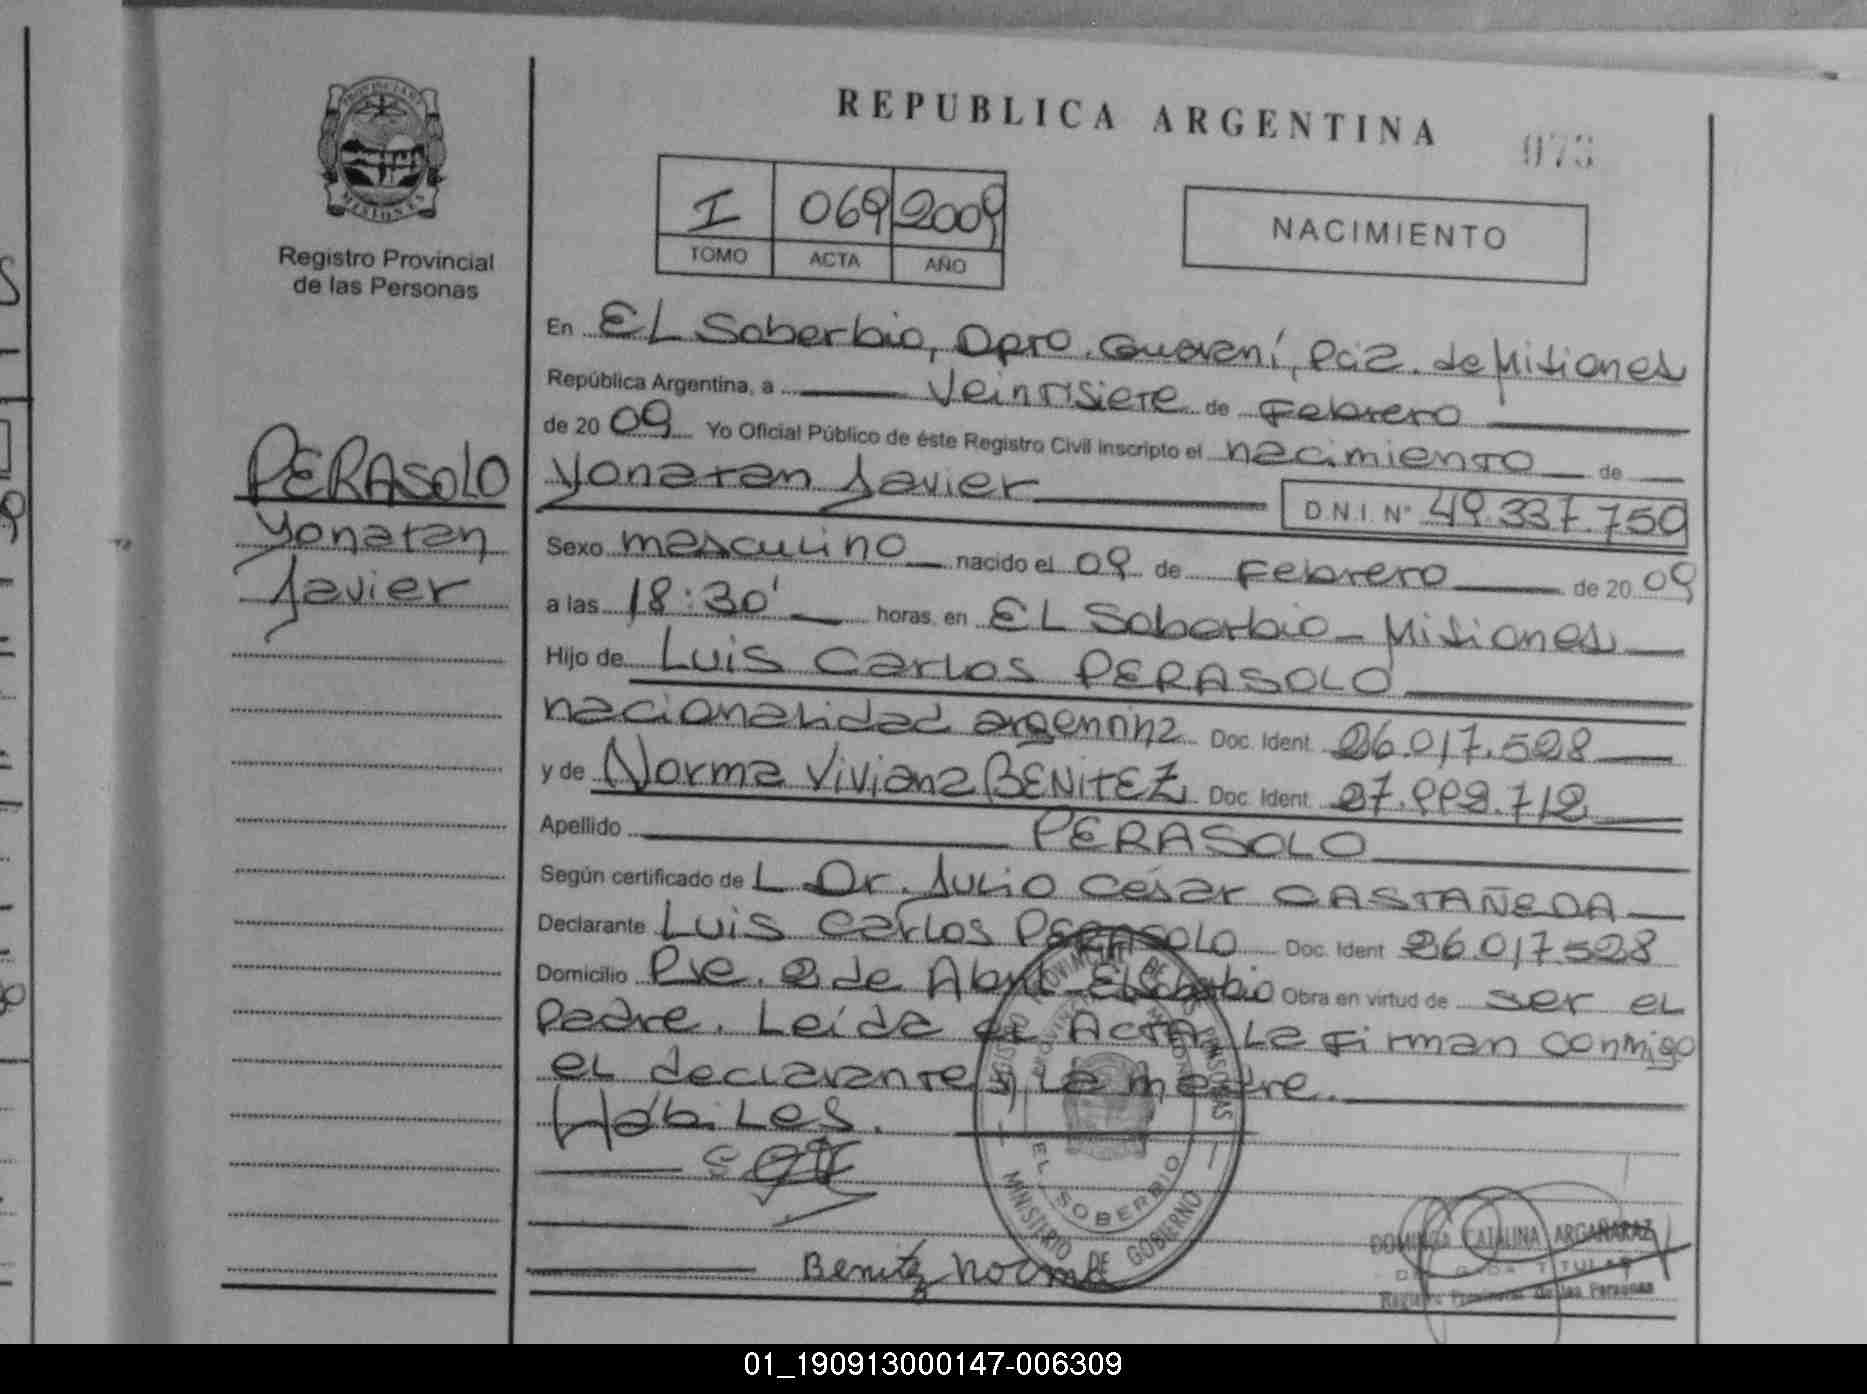 PROVINCIA DE
MISIONES
Registro Provincial
de las Personas
REPUBLICA ARGENTINA
073
I 069 2009
TOMO ACTA AÑO
NACIMIENTO
En EL Soberbio, Dpto. Guaraní, Pcia. de Misiones
República Argentina, a Veintisiete de Febrero
de 20 09 Yo Oficial Público de éste Registro Civil inscripto el nacimiento de
Yonatan Javier D.N.I. N° 49.337.750
PERASOLO
Yonatan
Javier
Sexo masculino nacido el 09 de Febrero de 20 09
a las 18:30' horas, en EL Soberbio - Misiones
Hijo de Luis Carlos PERASOLO
nacionalidad argentina Doc. Ident. 26.017.528
y de Norma Viviana BENITEZ Doc. Ident. 27.992.712
Apellido PERASOLO
Según certificado de L Dr. Julio César CASTAÑEDA
Declarante Luis Carlos PERASOLO Doc. Ident 26.017.528
Domicilio Pje. 2 de Abril - El Soberbio Obra en virtud de ser el
Padre. Leída el ACTA, La Firman conmigo
el declarante y La madre.
Hábiles.
EL SOBERBIO
MINISTERIO DE GOBIERNO
Benitez Norma
DOMINGA CATALINA ARGAÑARAZ
DELEGADA TITULAR
Registro Provincial de las Personas
01_190913000147-006309